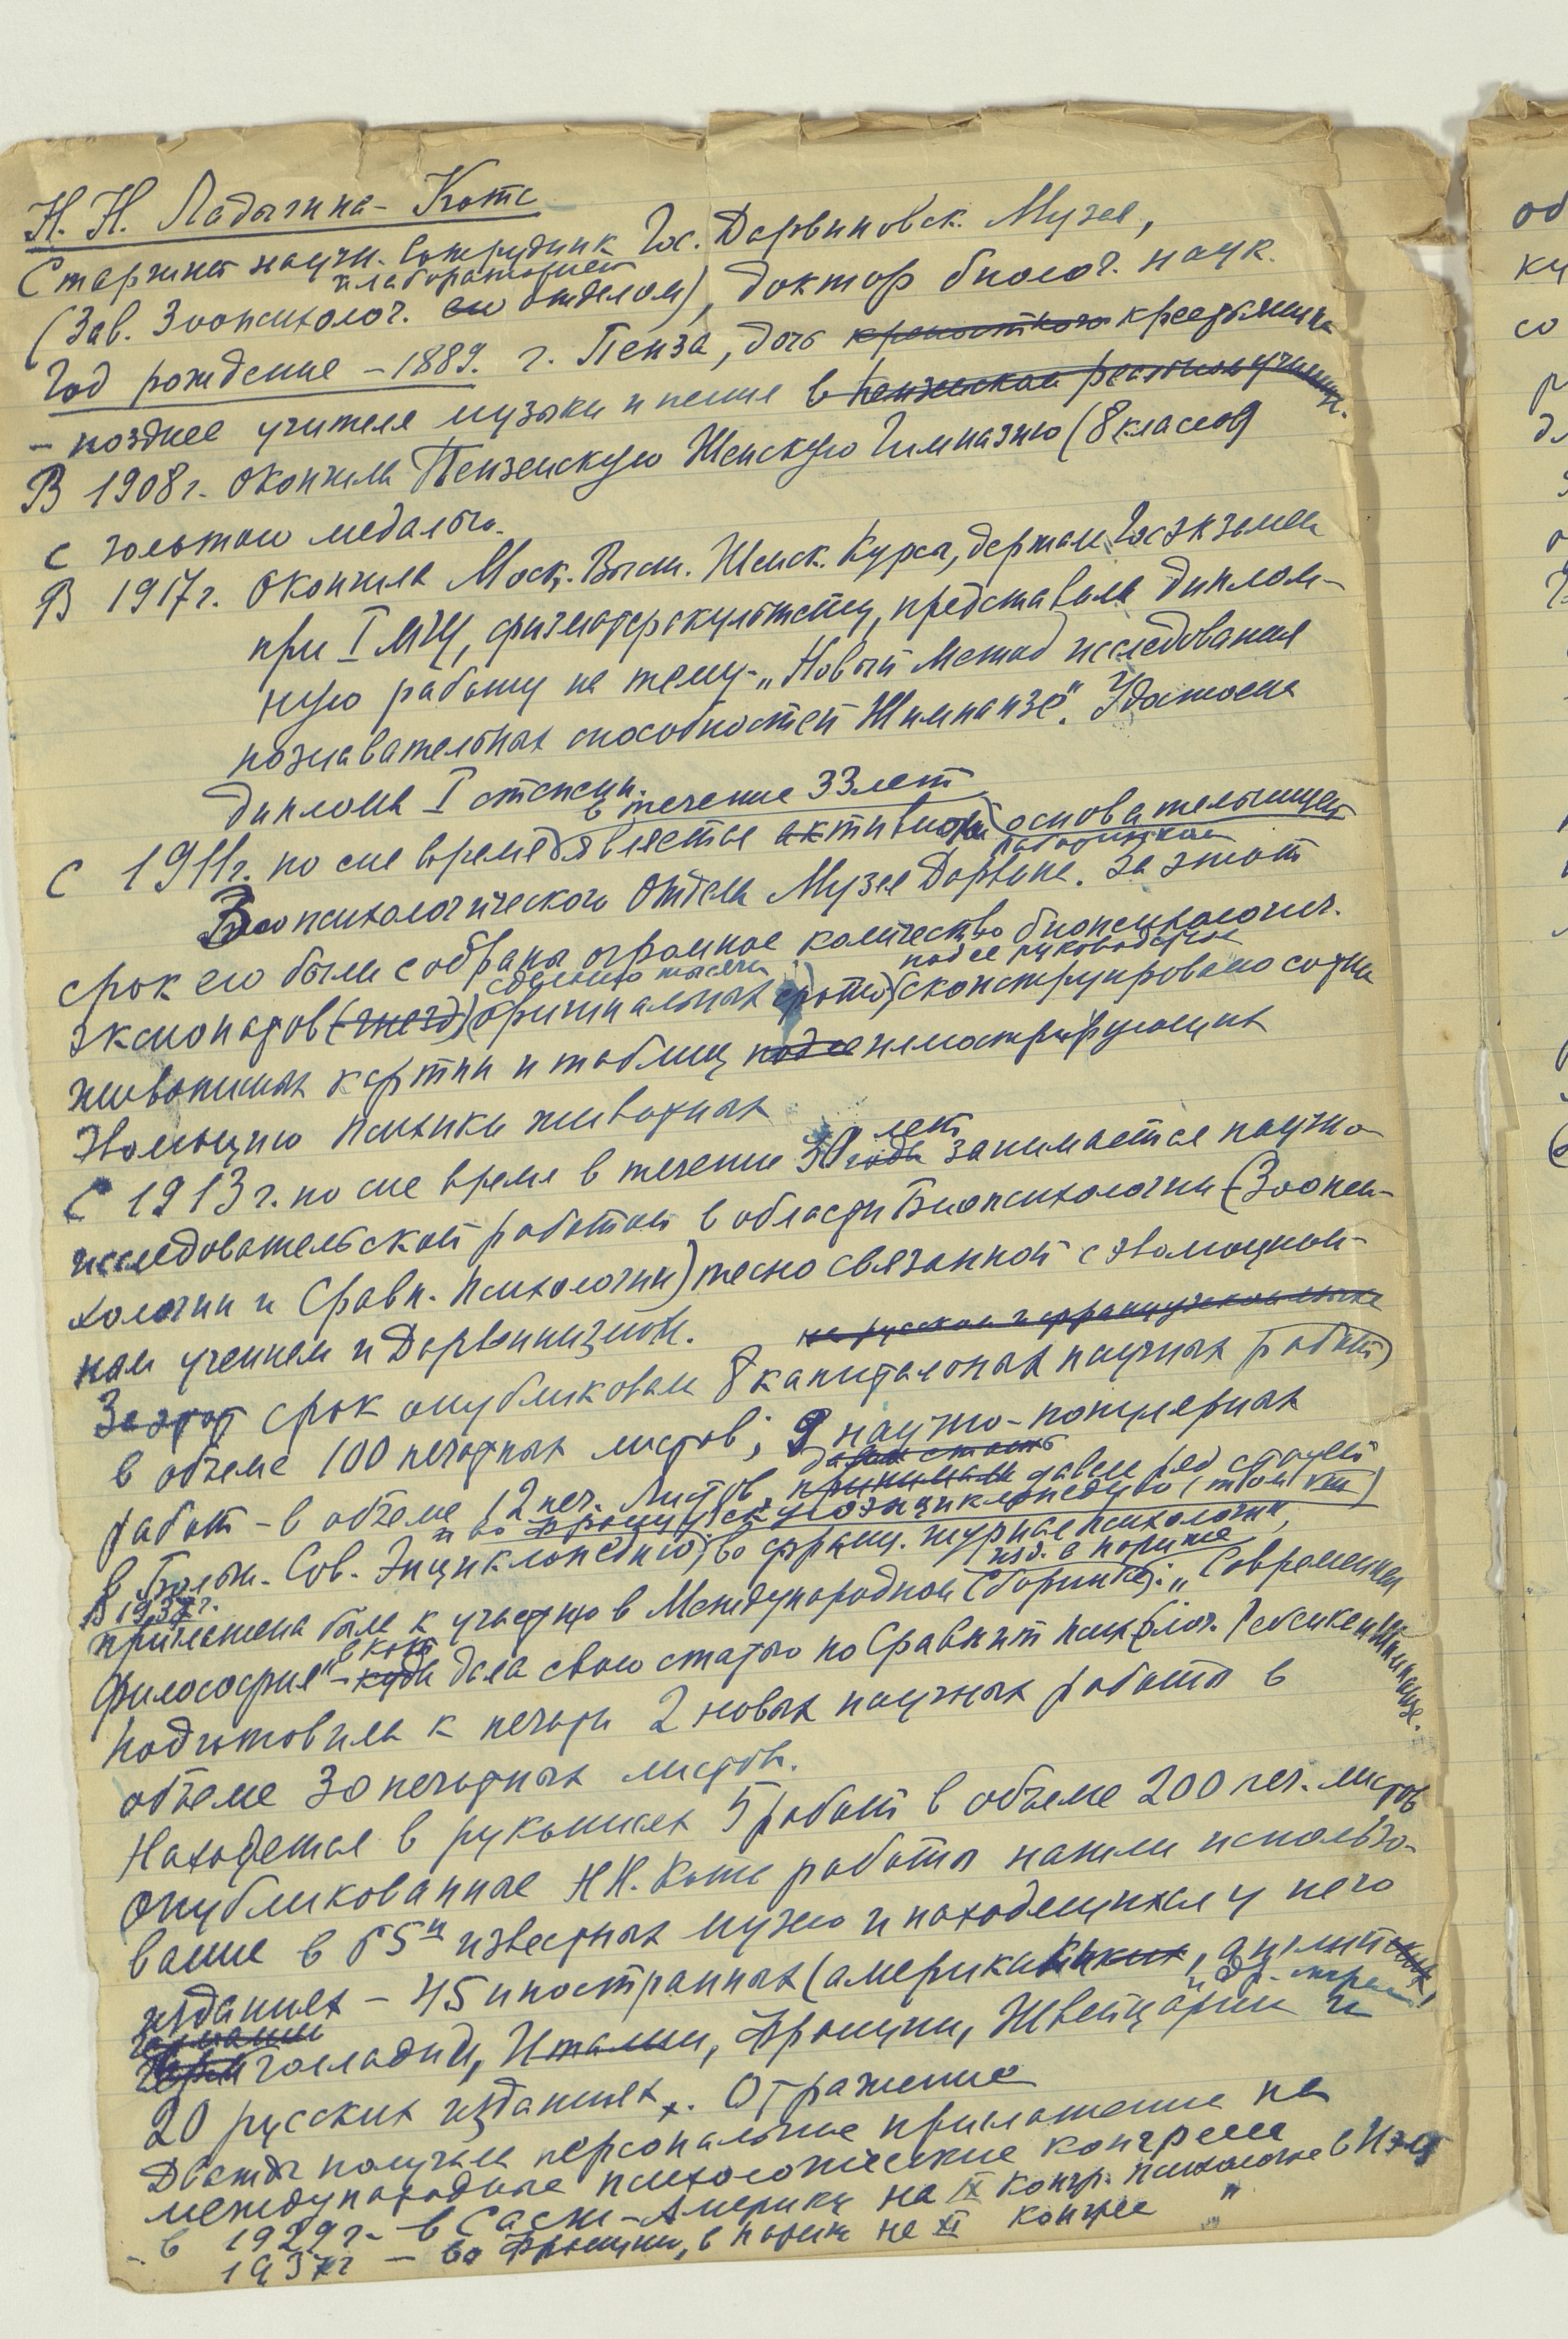 Н. Н. Ладыгина-Котс
Старший научн. Сотрудник Гос. Дарвиновск. Музея,
и лабораторией
(Зав. Зоопсихолог. отделом), доктор биолог. наук.
Год рождения – 1889. г. Пенза, дочь крепостного крестьянина
– позднее учителя музыки и пения в Пензенском реальном училищ.
В 1908 г. окончила Пензенскую Женскую Гимназию (8 классов)
с золотою медалью.
В 1917 г. окончила Моск. Высш. Женск. Курсы, держала Госэкзамен
при I МГУ, физматфракультету, представила диплом-
ную работу на тему – „Новый метод исследования
познавательных способностей Шимпанзе". Удостоена
диплома I степени.
в течение 33 лет
С 1911 г. по сие время является активной основательницей
работником
Зоопсихологического Отдела Музея Дарвина. За этот
срок ею были собраны огромное количество биопсихологич.
свыше тысячи под ее руководством
экспонатов оригинальных фото, сконструировано сотни
живописных картин и таблиц под ее иллюстрирующих
Эволюцию психики животных
лет
С 1913 г. по сие время в течение 30 года занимается научно-
исследовательской работой в области Биопсихологии (Зоопси-
хологии и Сравн. Психологии) тесно связанной с эволюцион-
ным учением и Дарвинизмом.
на русском и французском языке
За этот срок опубликовала 8 капитальных научных работ
в объеме 100 печатных листов; 9 научно-популярных
работ – в объеме 12 печ. листов, принимала давала ряд статей
и во Французскую энциклопедию (том VIII)
в Больш. Сов. Энциклопедию, во франц. журнал психологии,
В 1937 г. изд. в Париже
приглашена была к участию в Международном Сборнике: „Современная
в кот.
философия" – куда дала свою статью по Сравнит психолог. шимпанзе.
Подготовила к печати 2 новых научных работы в
объеме 30 печатных листов.
Находятся в рукописях 5 работ в объеме 200 печ. листов
Опубликованные Н.Н. Котс работы нашли использо-
вание в 65и известных музею и находящихся у него
изданиях – 45 иностранных (американских, английских,
Германии и др. стран
Голландии, Италии, Франции, Швейцарии и
20 русских изданиях. Отражение
Дважды получила персональное приглашение на
международные психологические конгрессы
– в 1929 г. – в Соедин-Америку на IX Конгр. психологов в
1937 г – во Францию, в Париж на XI конгресс "